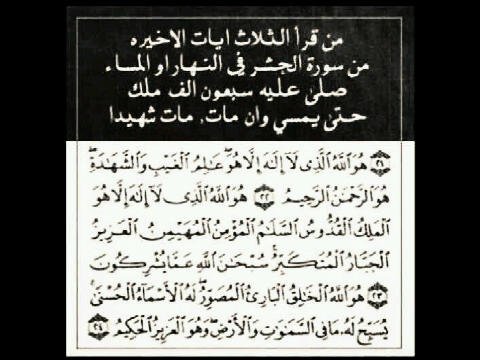 من قرأ الثلاث ايات الاخيره
من سورة الحشر في النهار او المساء
صلى عليه سبعون الف ملك
حتى يمسي وان مات, مات شهيدا
﴿٢١﴾ هُوَ ٱللَّهُ ٱلَّذِى لَآ إِلَٰهَ إِلَّا هُوَۖ عَٰلِمُ ٱلْغَيْبِ وَٱلشَّهَٰدَةِۖ
هُوَ ٱلرَّحْمَٰنُ ٱلرَّحِيمُ ﴿٢٢﴾ هُوَ ٱللَّهُ ٱلَّذِى لَآ إِلَٰهَ إِلَّا هُوَ
ٱلْمَلِكُ ٱلْقُدُّوسُ ٱلسَّلَٰمُ ٱلْمُؤْمِنُ ٱلْمُهَيْمِنُ ٱلْعَزِيزُ
ٱلْجَبَّارُ ٱلْمُتَكَبِّرُۚ سُبْحَٰنَ ٱللَّهِ عَمَّا يُشْرِكُونَ
﴿٢٣﴾ هُوَ ٱللَّهُ ٱلْخَٰلِقُ ٱلْبَارِئُ ٱلْمُصَوِّرُۖ لَهُ ٱلْأَسْمَآءُ ٱلْحُسْنَىٰۚ
يُسَبِّحُ لَهُۥ مَا فِى ٱلسَّمَٰوَٰتِ وَٱلْأَرْضِۖ وَهُوَ ٱلْعَزِيزُ ٱلْحَكِيمُ ﴿٢٤﴾